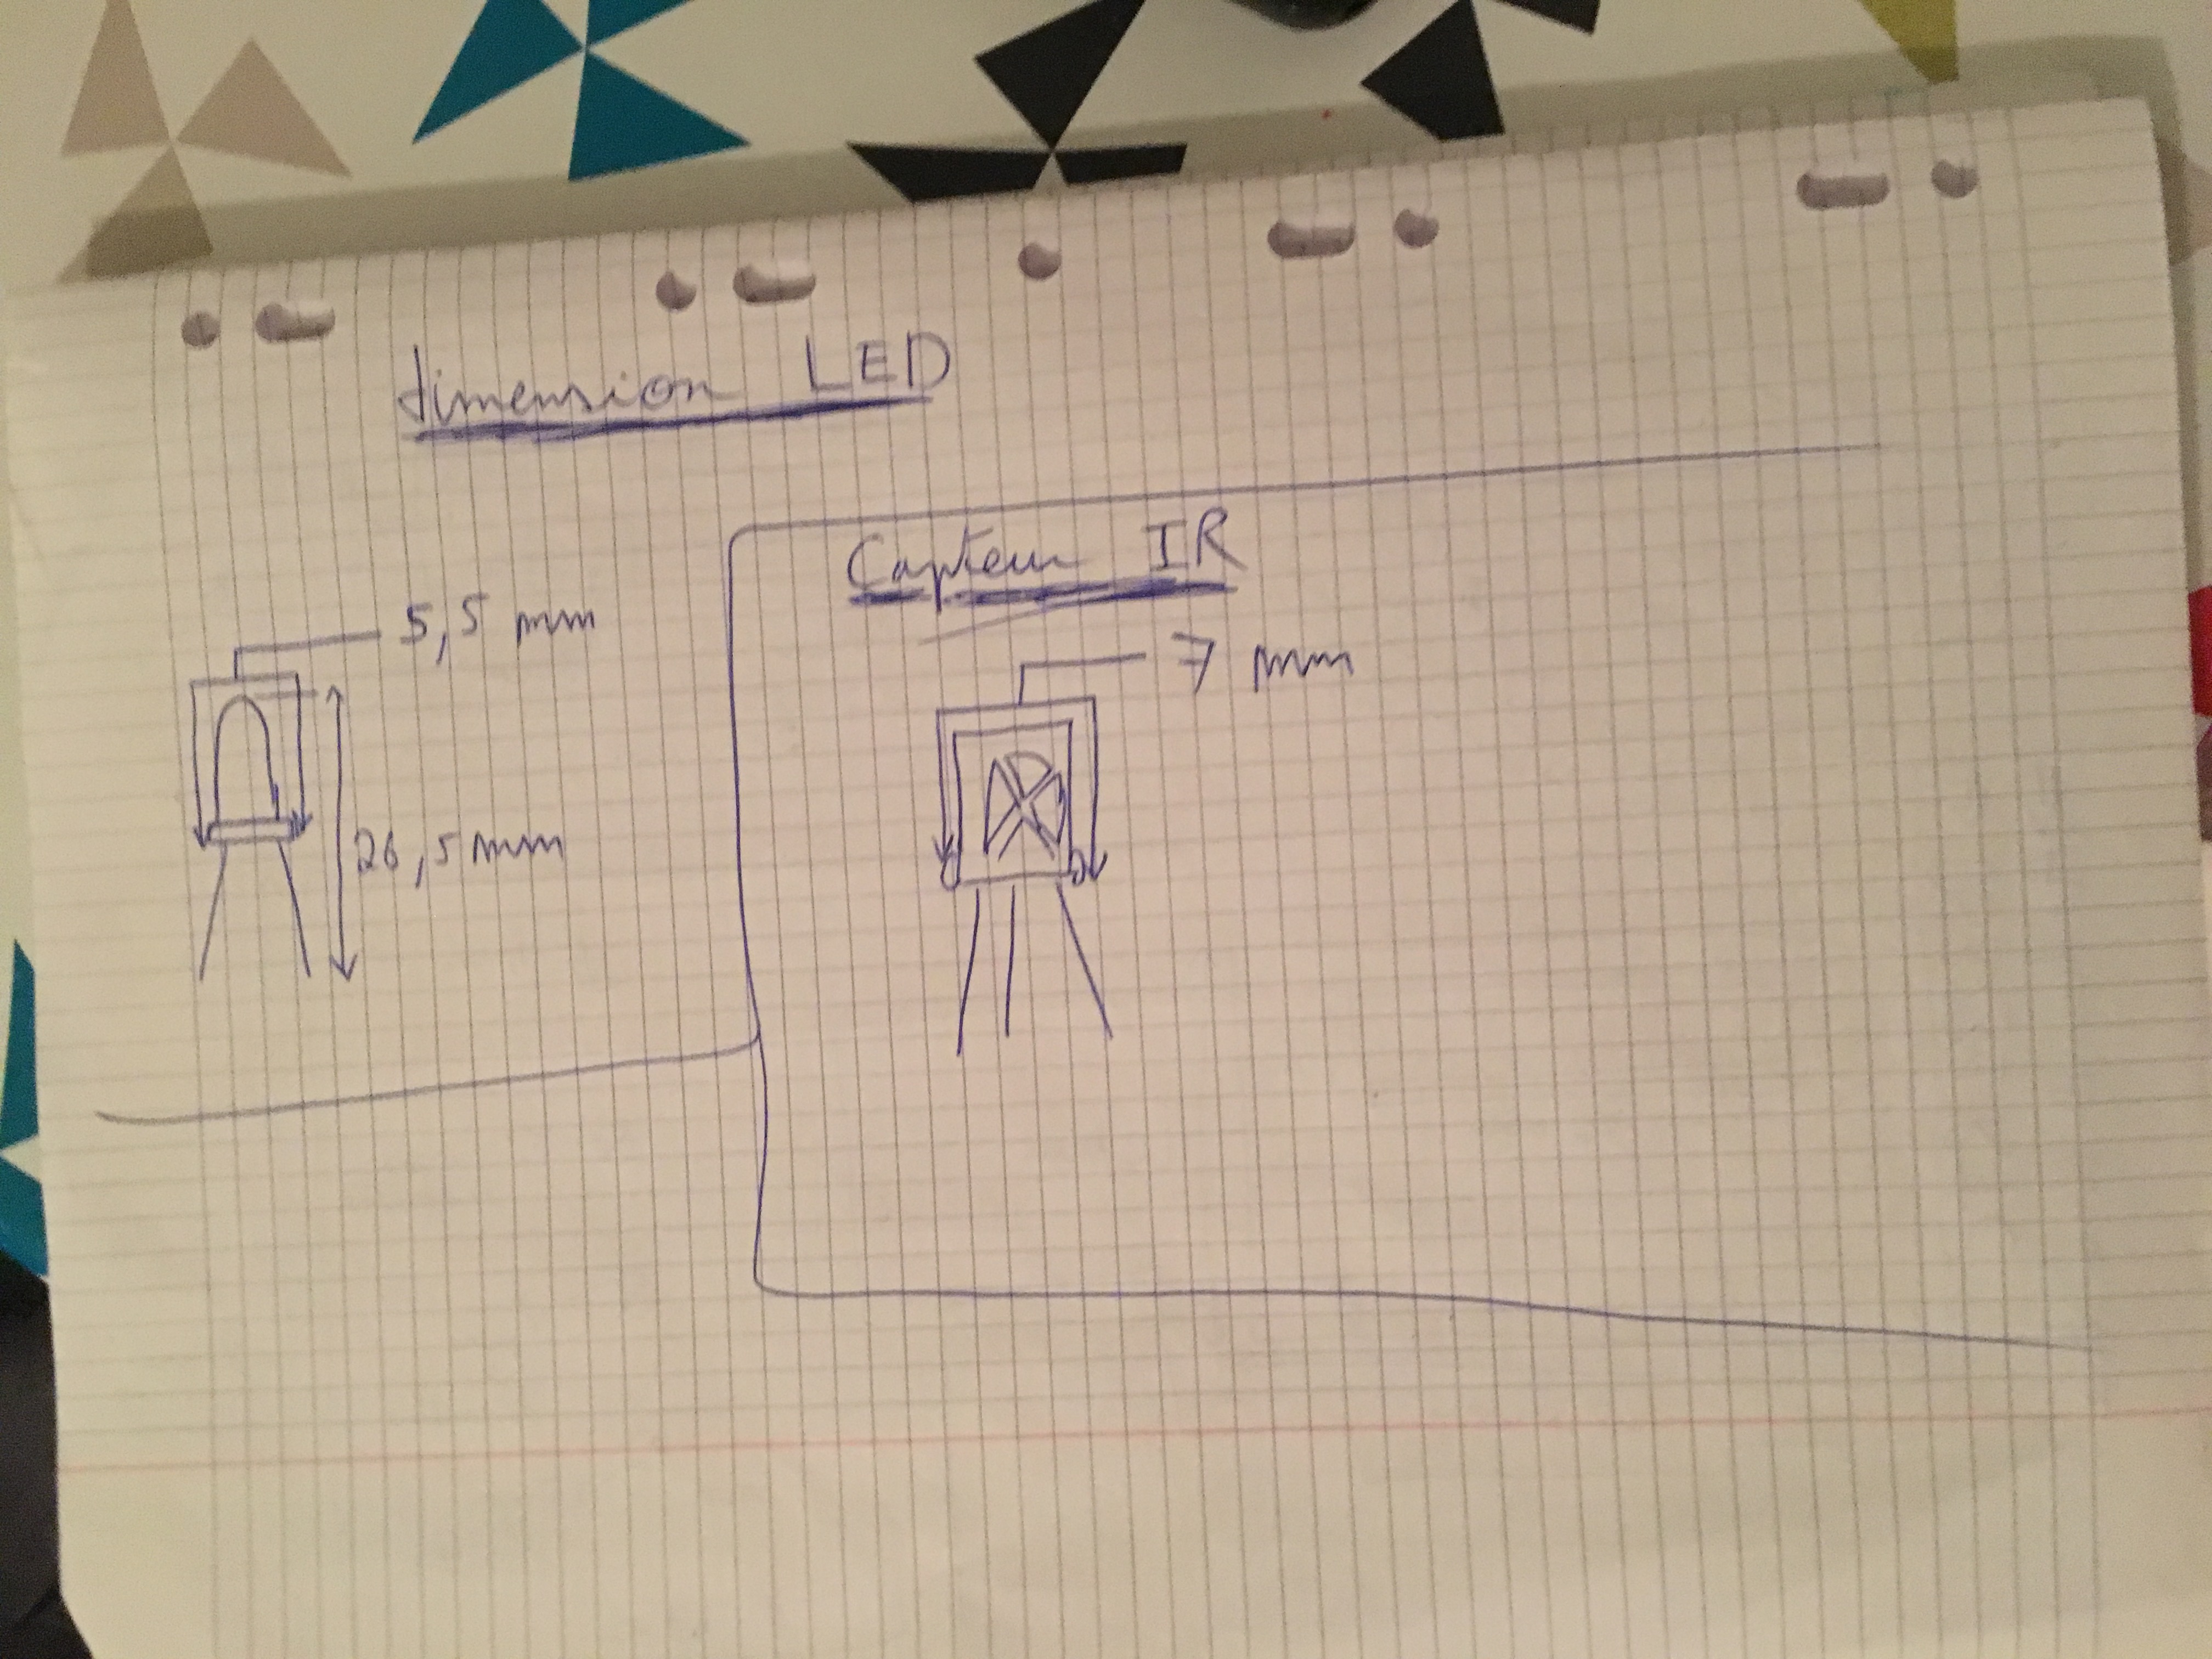 dimension LED
5,5 mm
26,5 mm
Capteur IR
7 mm